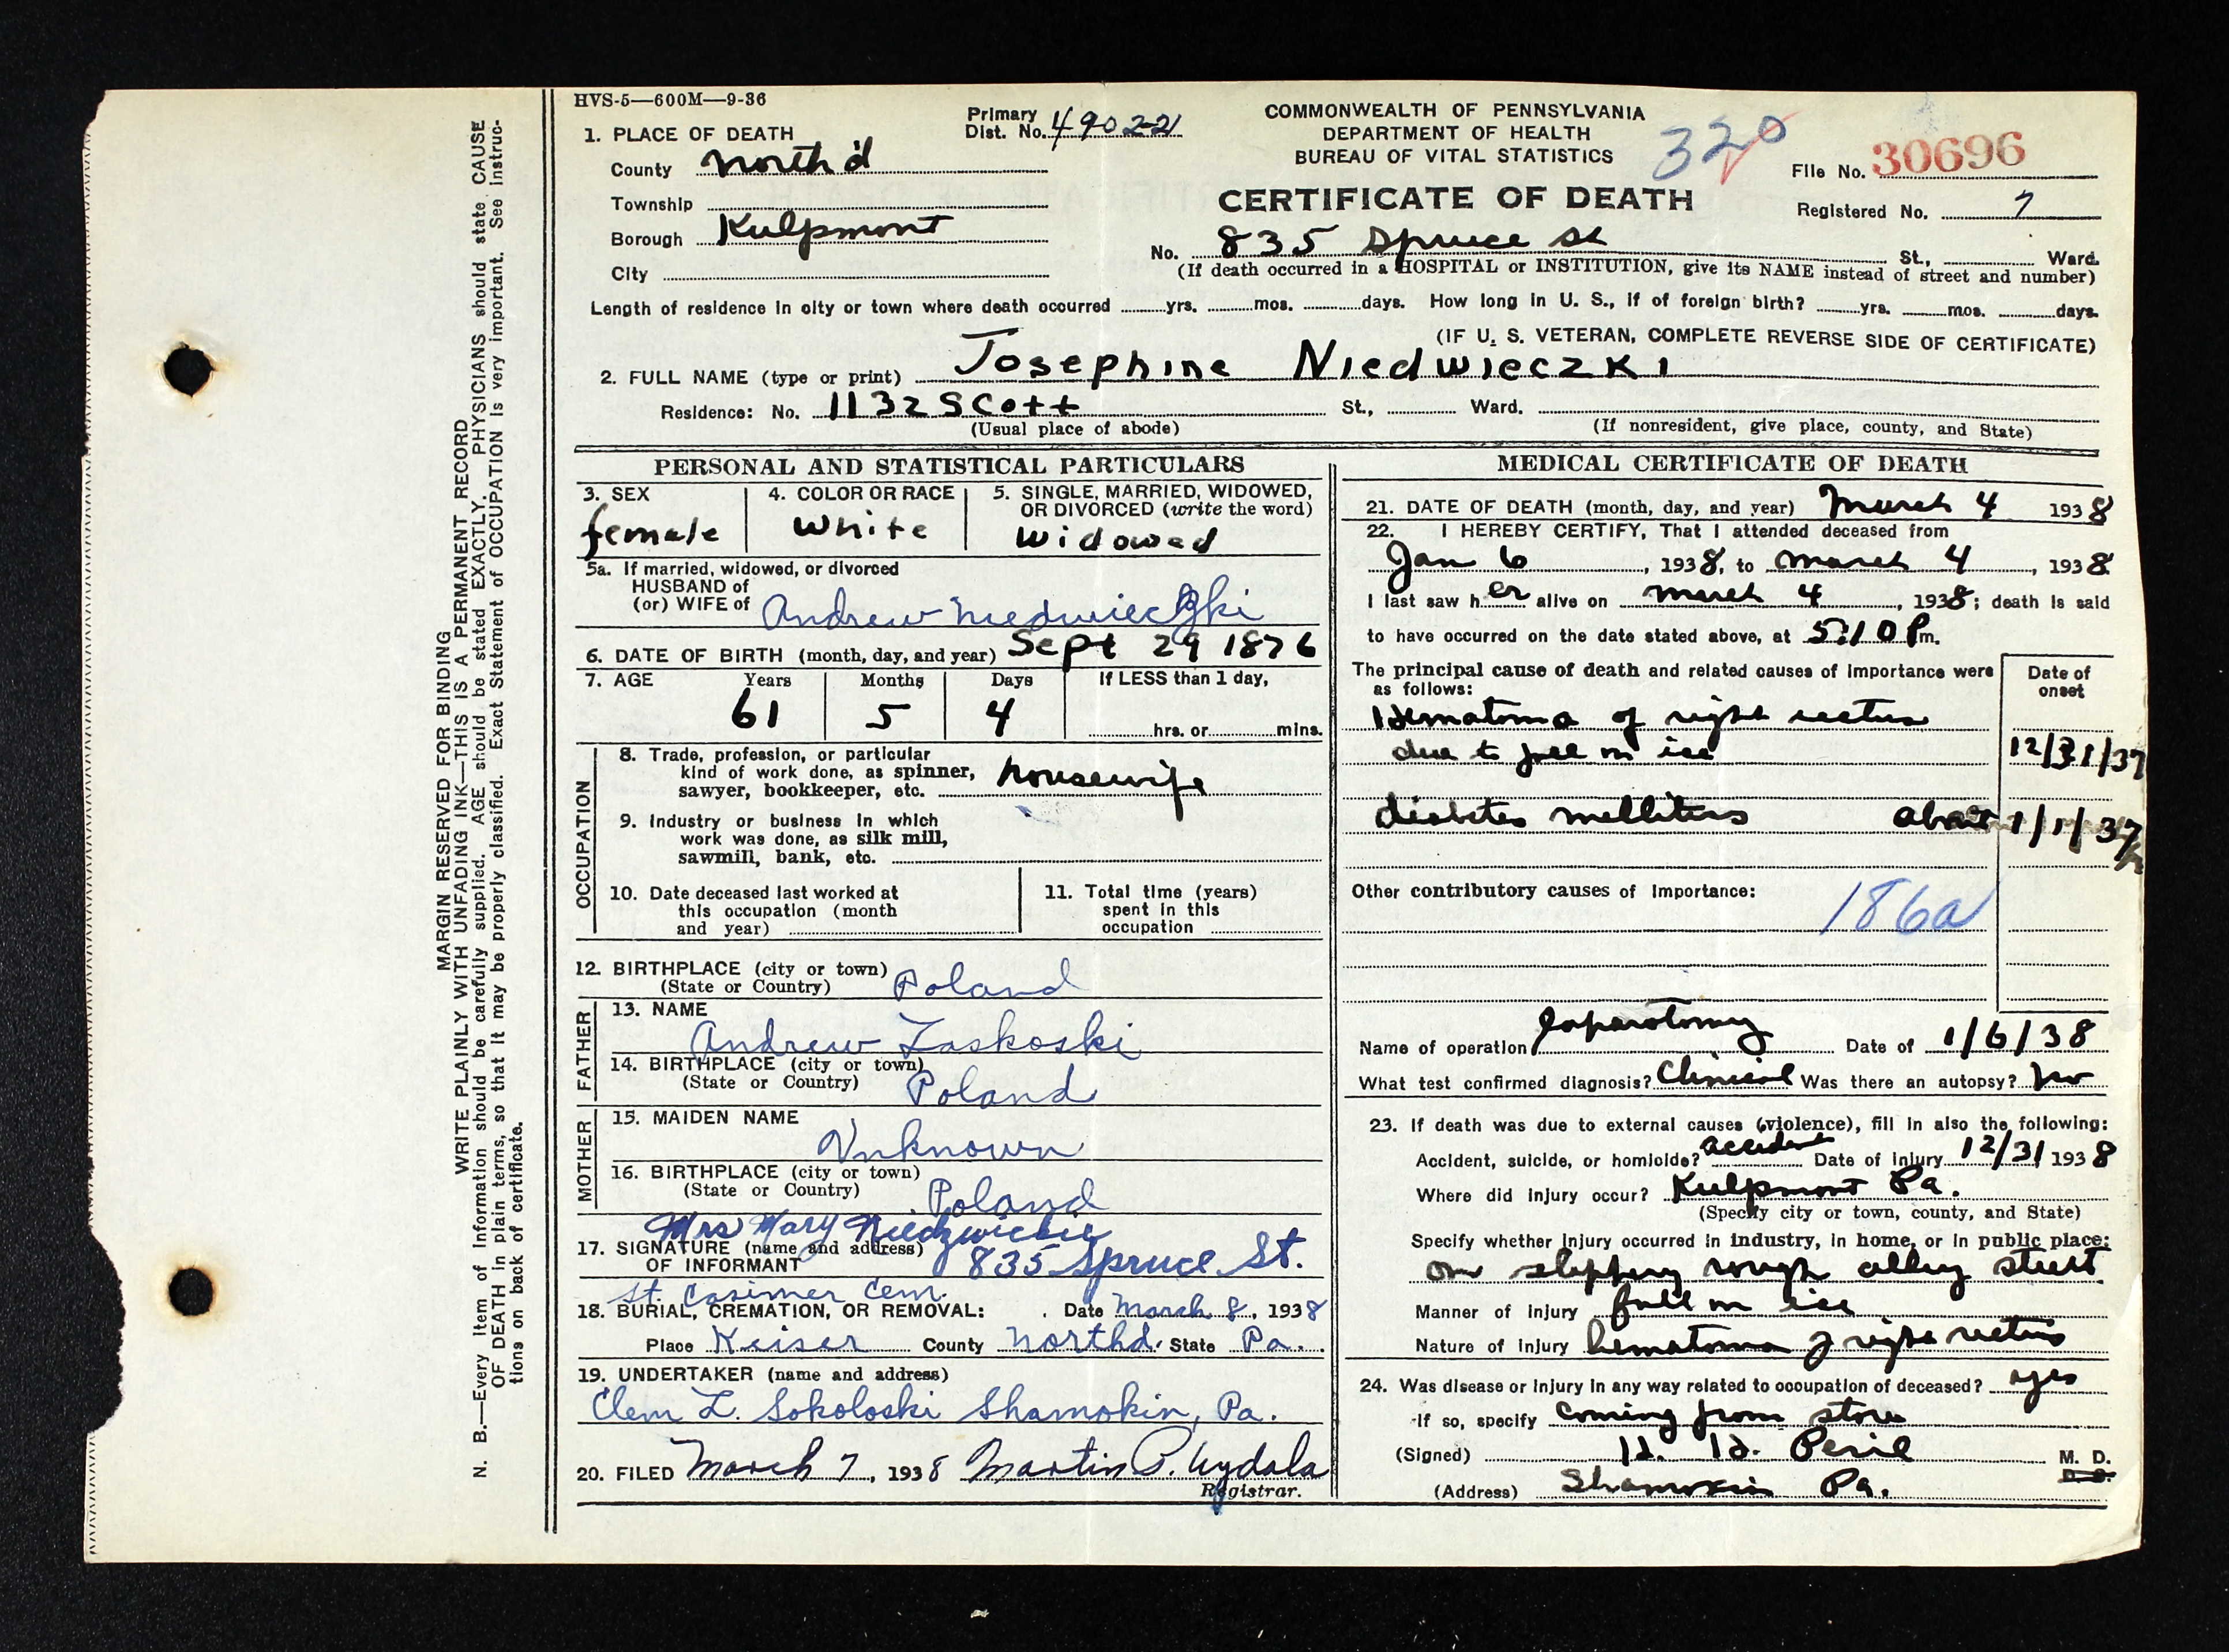 HVS-5—600M—9-36
Primary
Dist. No. 490221
COMMONWEALTH OF PENNSYLVANIA
DEPARTMENT OF HEALTH
BUREAU OF VITAL STATISTICS
320
File No. 30696
CERTIFICATE OF DEATH
Registered No. 7
1. PLACE OF DEATH
County North'd
Township
Borough Kulpmont
City
No. 835 Spruce St St., Ward.
(If death occurred in a HOSPITAL or INSTITUTION, give its NAME instead of street and number)
Length of residence in city or town where death occurred yrs. mos. days. How long in U. S., if of foreign birth? yrs. mos. days.
(IF U. S. VETERAN, COMPLETE REVERSE SIDE OF CERTIFICATE)
2. FULL NAME (type or print) Josephine Niedwieczki
Residence: No. 1132 Scott St., Ward.
(Usual place of abode) (If nonresident, give place, county, and State)
PERSONAL AND STATISTICAL PARTICULARS
3. SEX
female
4. COLOR OR RACE
White
5. SINGLE, MARRIED, WIDOWED,
OR DIVORCED (write the word)
Widowed
5a. If married, widowed, or divorced
HUSBAND of
(or) WIFE of Andrew Niedwieczki
6. DATE OF BIRTH (month, day, and year) Sept 29 1876
7. AGE Years Months Days If LESS than 1 day,
61 5 4 hrs. or mins.
OCCUPATION
8. Trade, profession, or particular
kind of work done, as spinner,
sawyer, bookkeeper, etc. housewife
9. Industry or business in which
work was done, as silk mill,
sawmill, bank, etc.
10. Date deceased last worked at
this occupation (month
and year)
11. Total time (years)
spent in this
occupation
12. BIRTHPLACE (city or town)
(State or Country) Poland
FATHER
13. NAME
Andrew Laskoski
14. BIRTHPLACE (city or town)
(State or Country) Poland
MOTHER
15. MAIDEN NAME
Unknown
16. BIRTHPLACE (city or town)
(State or Country) Poland
Mrs Mary
17. SIGNATURE (name and address)
OF INFORMANT 835 Spruce St.
St. Casimer Cem.
18. BURIAL, CREMATION, OR REMOVAL: Date March 8, 1938
Place Keiser County Northd. State Pa.
19. UNDERTAKER (name and address)
Clem L. Sokoloski Shamokin, Pa.
20. FILED March 7, 1938 Martin P.
Registrar.
MEDICAL CERTIFICATE OF DEATH
21. DATE OF DEATH (month, day, and year) March 4 1938
22. I HEREBY CERTIFY, That I attended deceased from
Jan 6, 1938, to March 4, 1938
I last saw her alive on March 4, 1938; death is said
to have occurred on the date stated above, at 5:10 Pm.
The principal cause of death and related causes of importance were
as follows:
Date of
onset
Hematoma of right rectus
due to fall on ice 12/31/37
diabetes mellitus about 1/1/37
Other contributory causes of importance:
186a
Name of operation laparotomy Date of 1/6/38
What test confirmed diagnosis? Clinical Was there an autopsy? no
23. If death was due to external causes (violence), fill in also the following:
Accident, suicide, or homicide? accident Date of injury 12/31 1938
Where did injury occur? Kulpmont Pa.
(Specify city or town, county, and State)
Specify whether injury occurred in industry, in home, or in public place:
on slippery rough alley street
Manner of injury fall on ice
Nature of injury hematoma of right rectus
24. Was disease or injury in any way related to occupation of deceased? yes
If so, specify coming from store
(Signed) M. D.
D. O.
(Address) Shamokin Pa.
MARGIN RESERVED FOR BINDING
WRITE PLAINLY WITH UNFADING INK—THIS IS A PERMANENT RECORD
N. B.—Every item of information should be carefully supplied. AGE should be stated EXACTLY. PHYSICIANS should state CAUSE
OF DEATH in plain terms, so that it may be properly classified. Exact Statement of OCCUPATION is very important. See instruc-
tions on back of certificate.